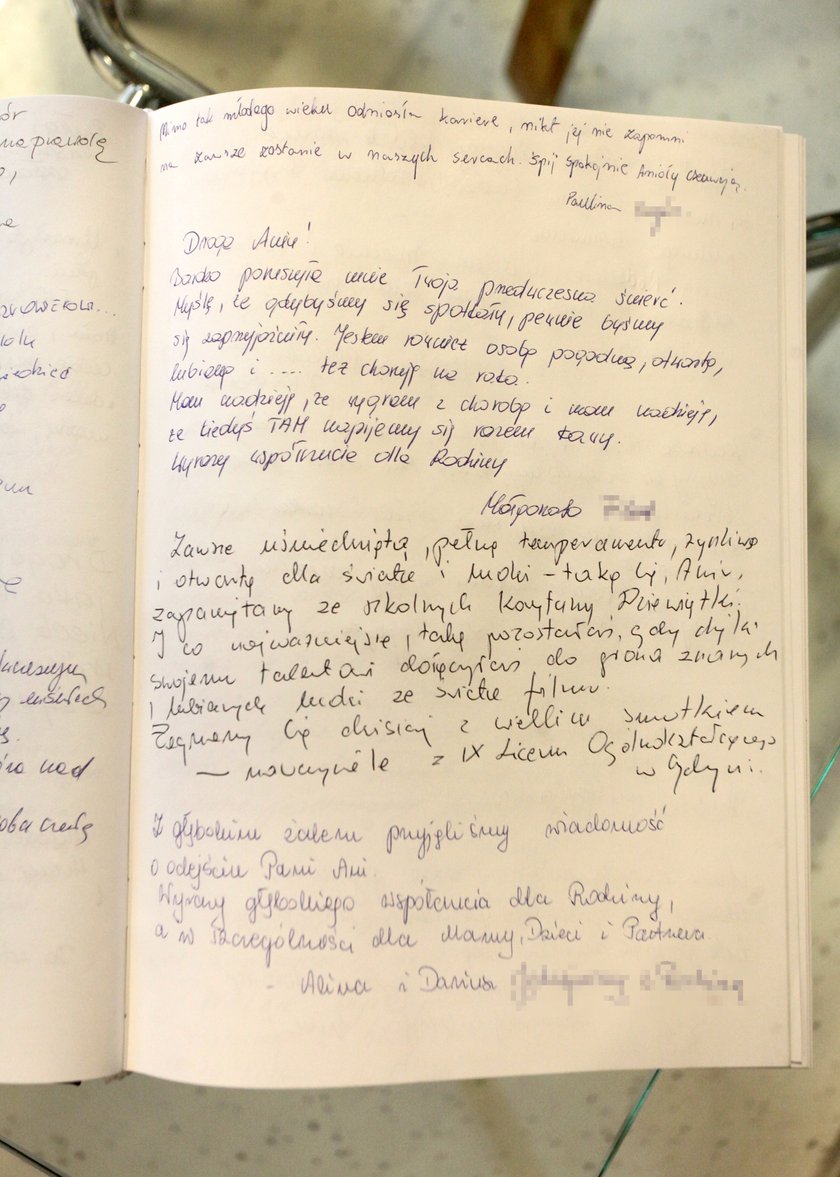 ór
na prawdę
Mimo tak młodego wieku odniosła kariere, nikt jej nie zapomni
na zawsze zostanie w naszych sercach. Śpij spokojnie Anioły czuwają.
Paulina
Droga Aniu!
Bardzo poruszyła mnie Twoja przedwczesna śmierć.
Myślę, że gdybyśmy się spotkały, pewnie byśmy
się zaprzyjaźniły. Jestem również osobą pogodną, otwartą,
lubianą i .... też choruję na raka.
Mam nadzieję, że wygram z chorobą i mam nadzieję,
że kiedyś TAM napijemy się razem kawy.
Wyrazy współczucia dla Rodziny
Małgorzata
Zawsze uśmiechniętą, pełną temperamentu, życzliwą
i otwartą dla świata i ludzi - taką Cię, Aniu,
zapamiętamy ze szkolnych korytarzy Dziewiątki.
I co najważniejsze, taką pozostałaś, gdy dzięki
swojemu talentowi dołączyłaś do grona znanych
i lubianych ludzi ze świata filmu.
Żegnamy Cię dzisiaj z wielkim smutkiem
— nauczyciele z IX Liceum Ogólnokształcącego
w Gdyni.
Z głębokim żalem przyjęliśmy wiadomość
o odejściu Pani Ani.
Wyrazy głębokiego współczucia dla Rodziny,
a w szczególności dla Mamy, Dzieci i Partnera.
- Alina i Dariusz